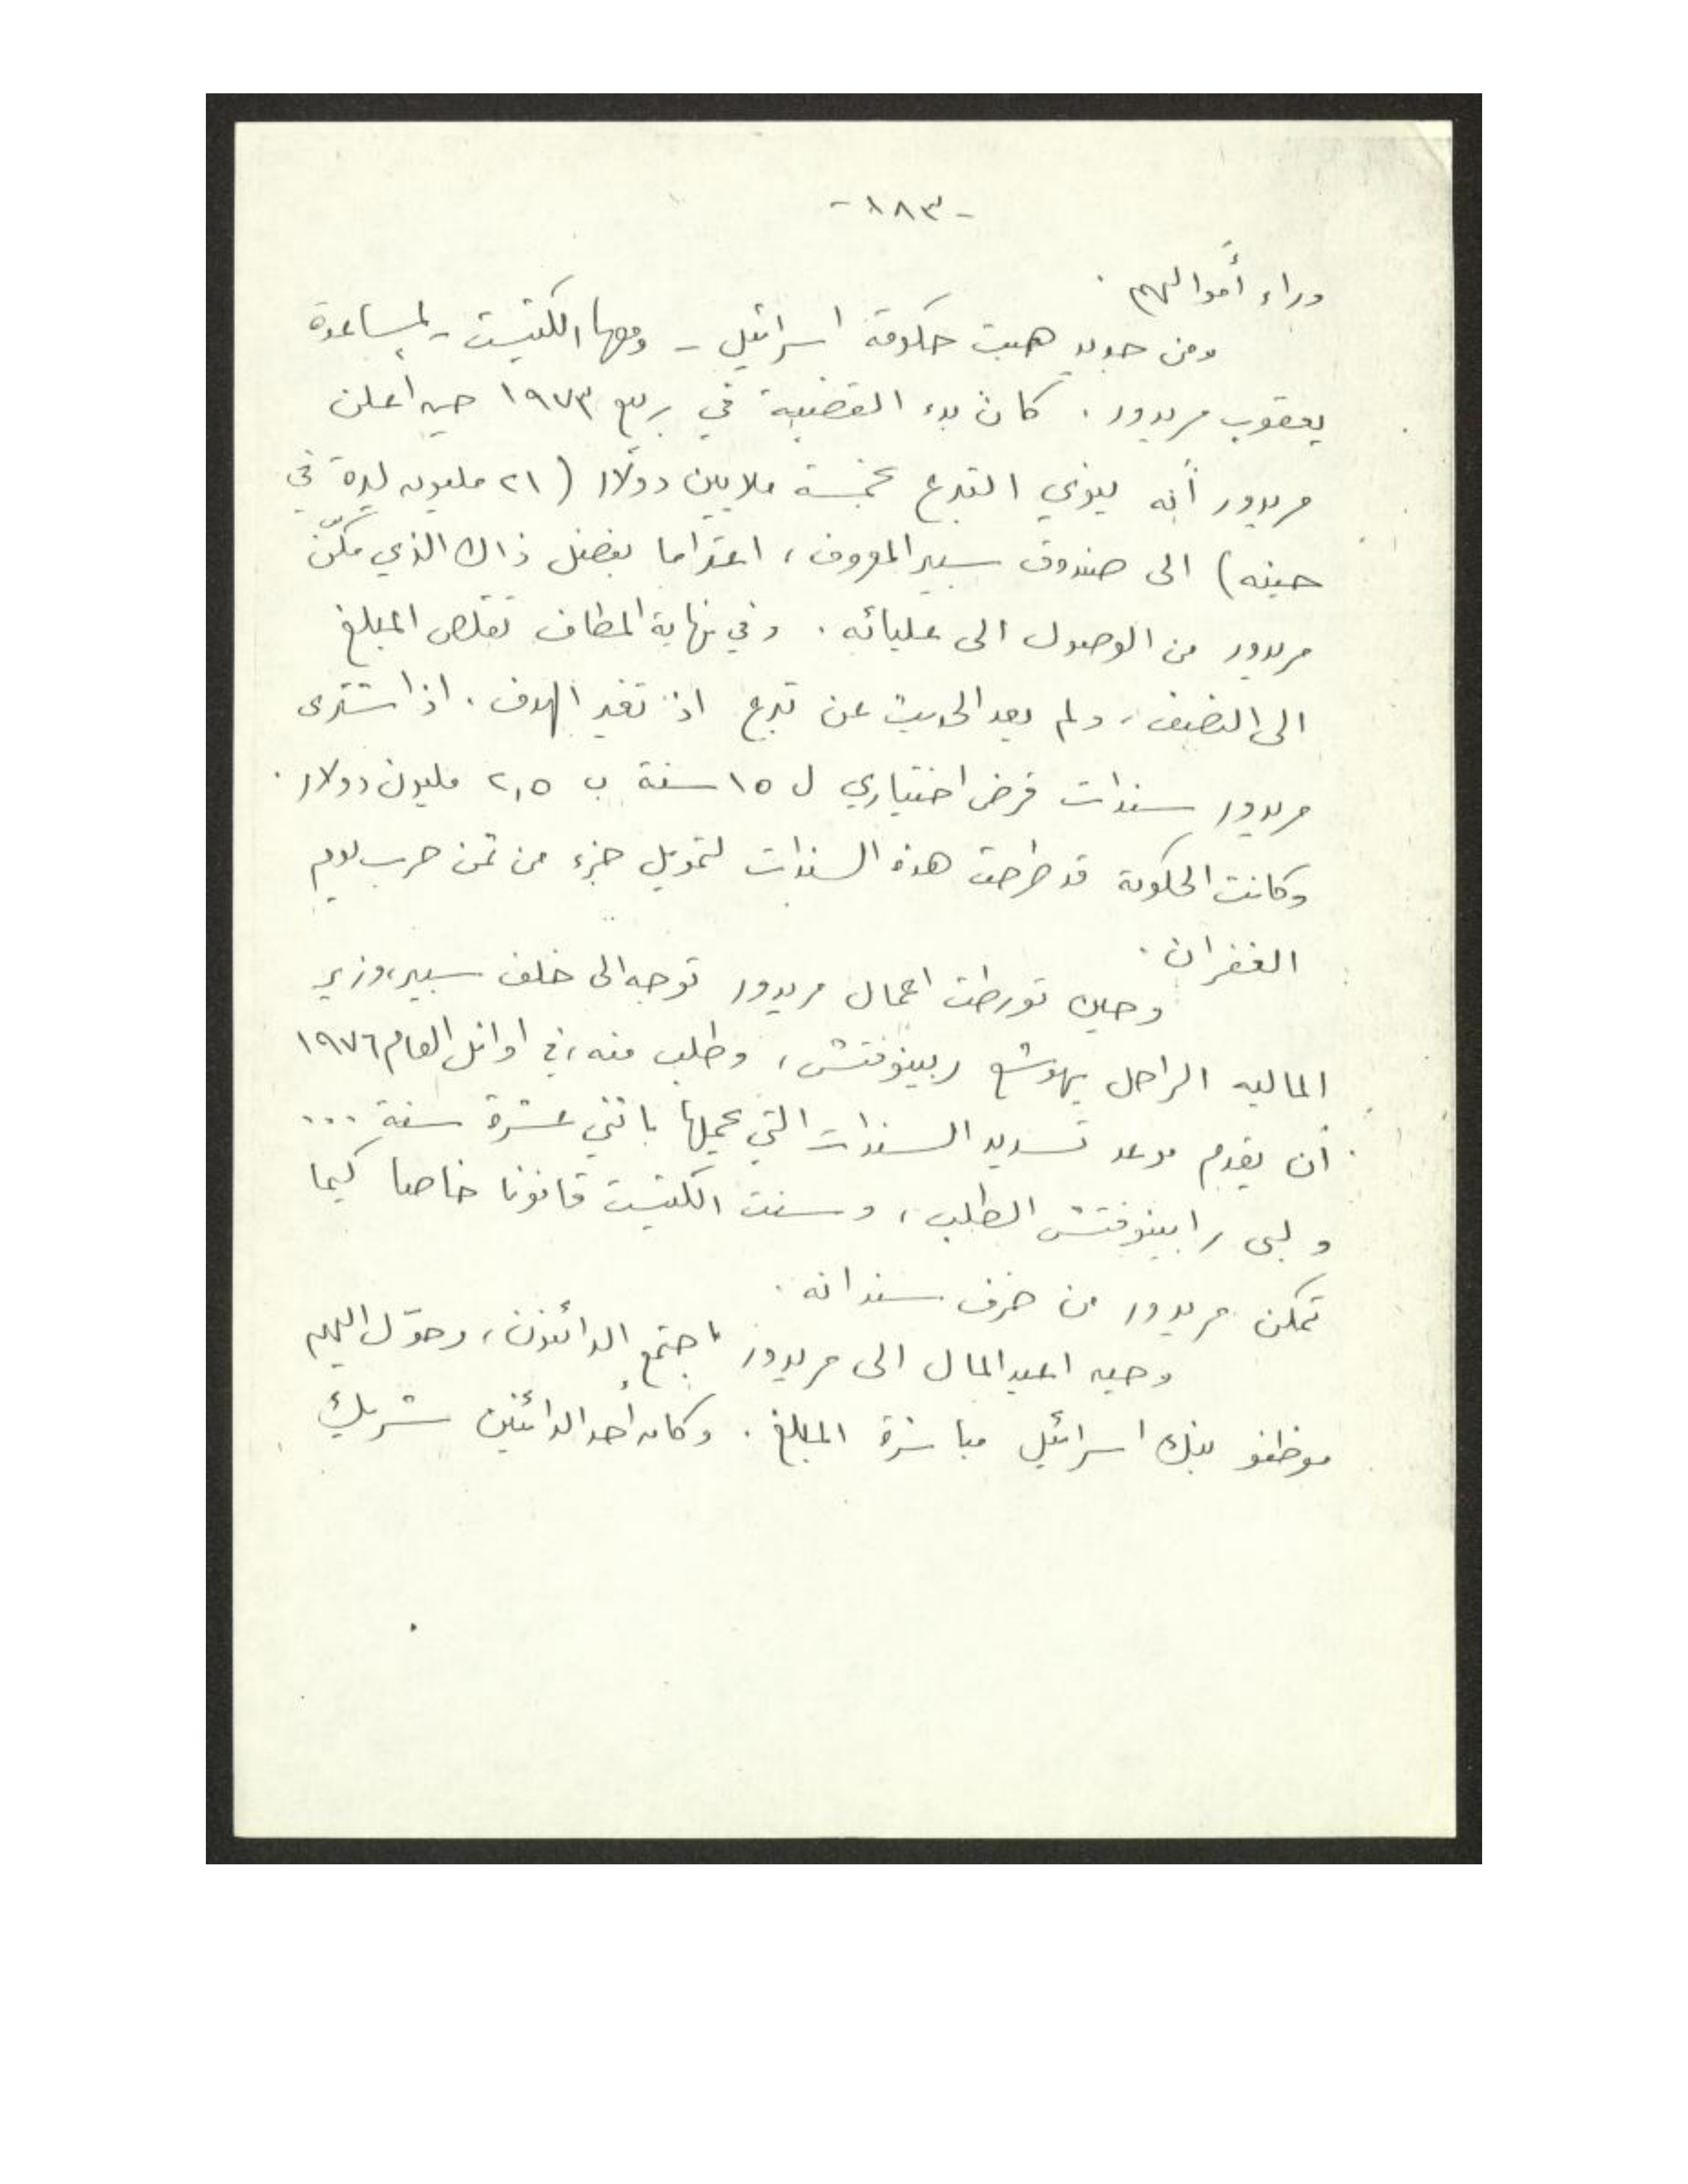 -١٨٣-
وراء أموالهم .
ومن جديد هبت حكومة اسرائيل - ومعها الكنيست - لمساعدة
يعقوب مريدور . كان بدء القضية في ربيع ١٩٧٣ حين أعلن
مريدور أنه ينوي التبرع بخمسة ملايين دولار ( ٢١ مليون ليرة في
حينه ) الى صندوق سبير المعروف ، اعترافا بفضل ذاك الذي مكّن
مريدور من الوصول الى عليائه . وفي نهاية المطاف تقلص المبلغ
الى النصف ، ولم يعد الحديث عن تبرع اذ تغير الهدف . اذ اشترى
مريدور سندات قرض اختياري ل ١٥ سنة ب ٢,٥ مليون دولار .
وكانت الحكومة قد طرحت هذه السندات لتمويل جزء من ثمن حرب يوم
الغفران .
وحين تورطت اعمال مريدور توجه الى خلف سبير ، وزير
الماليه الراحل يهوشع ربينوفتش ، وطلب منه ، في اوائل العام ١٩٧٦
أن يقدم موعد تسديد السندات التي يحملها باثني عشرة سنة ...
و لبى رابينوفتش الطلب ، و سنت الكنيست قانونا خاصا كيما
تمكن مريدور من صرف سنداته .
وحين اعيد المال الى مريدور اجتمع الدائنون ، وحوّل اليهم
موظفو بنك اسرائيل مباشرة المبلغ . وكان أحد الدائنين شريك